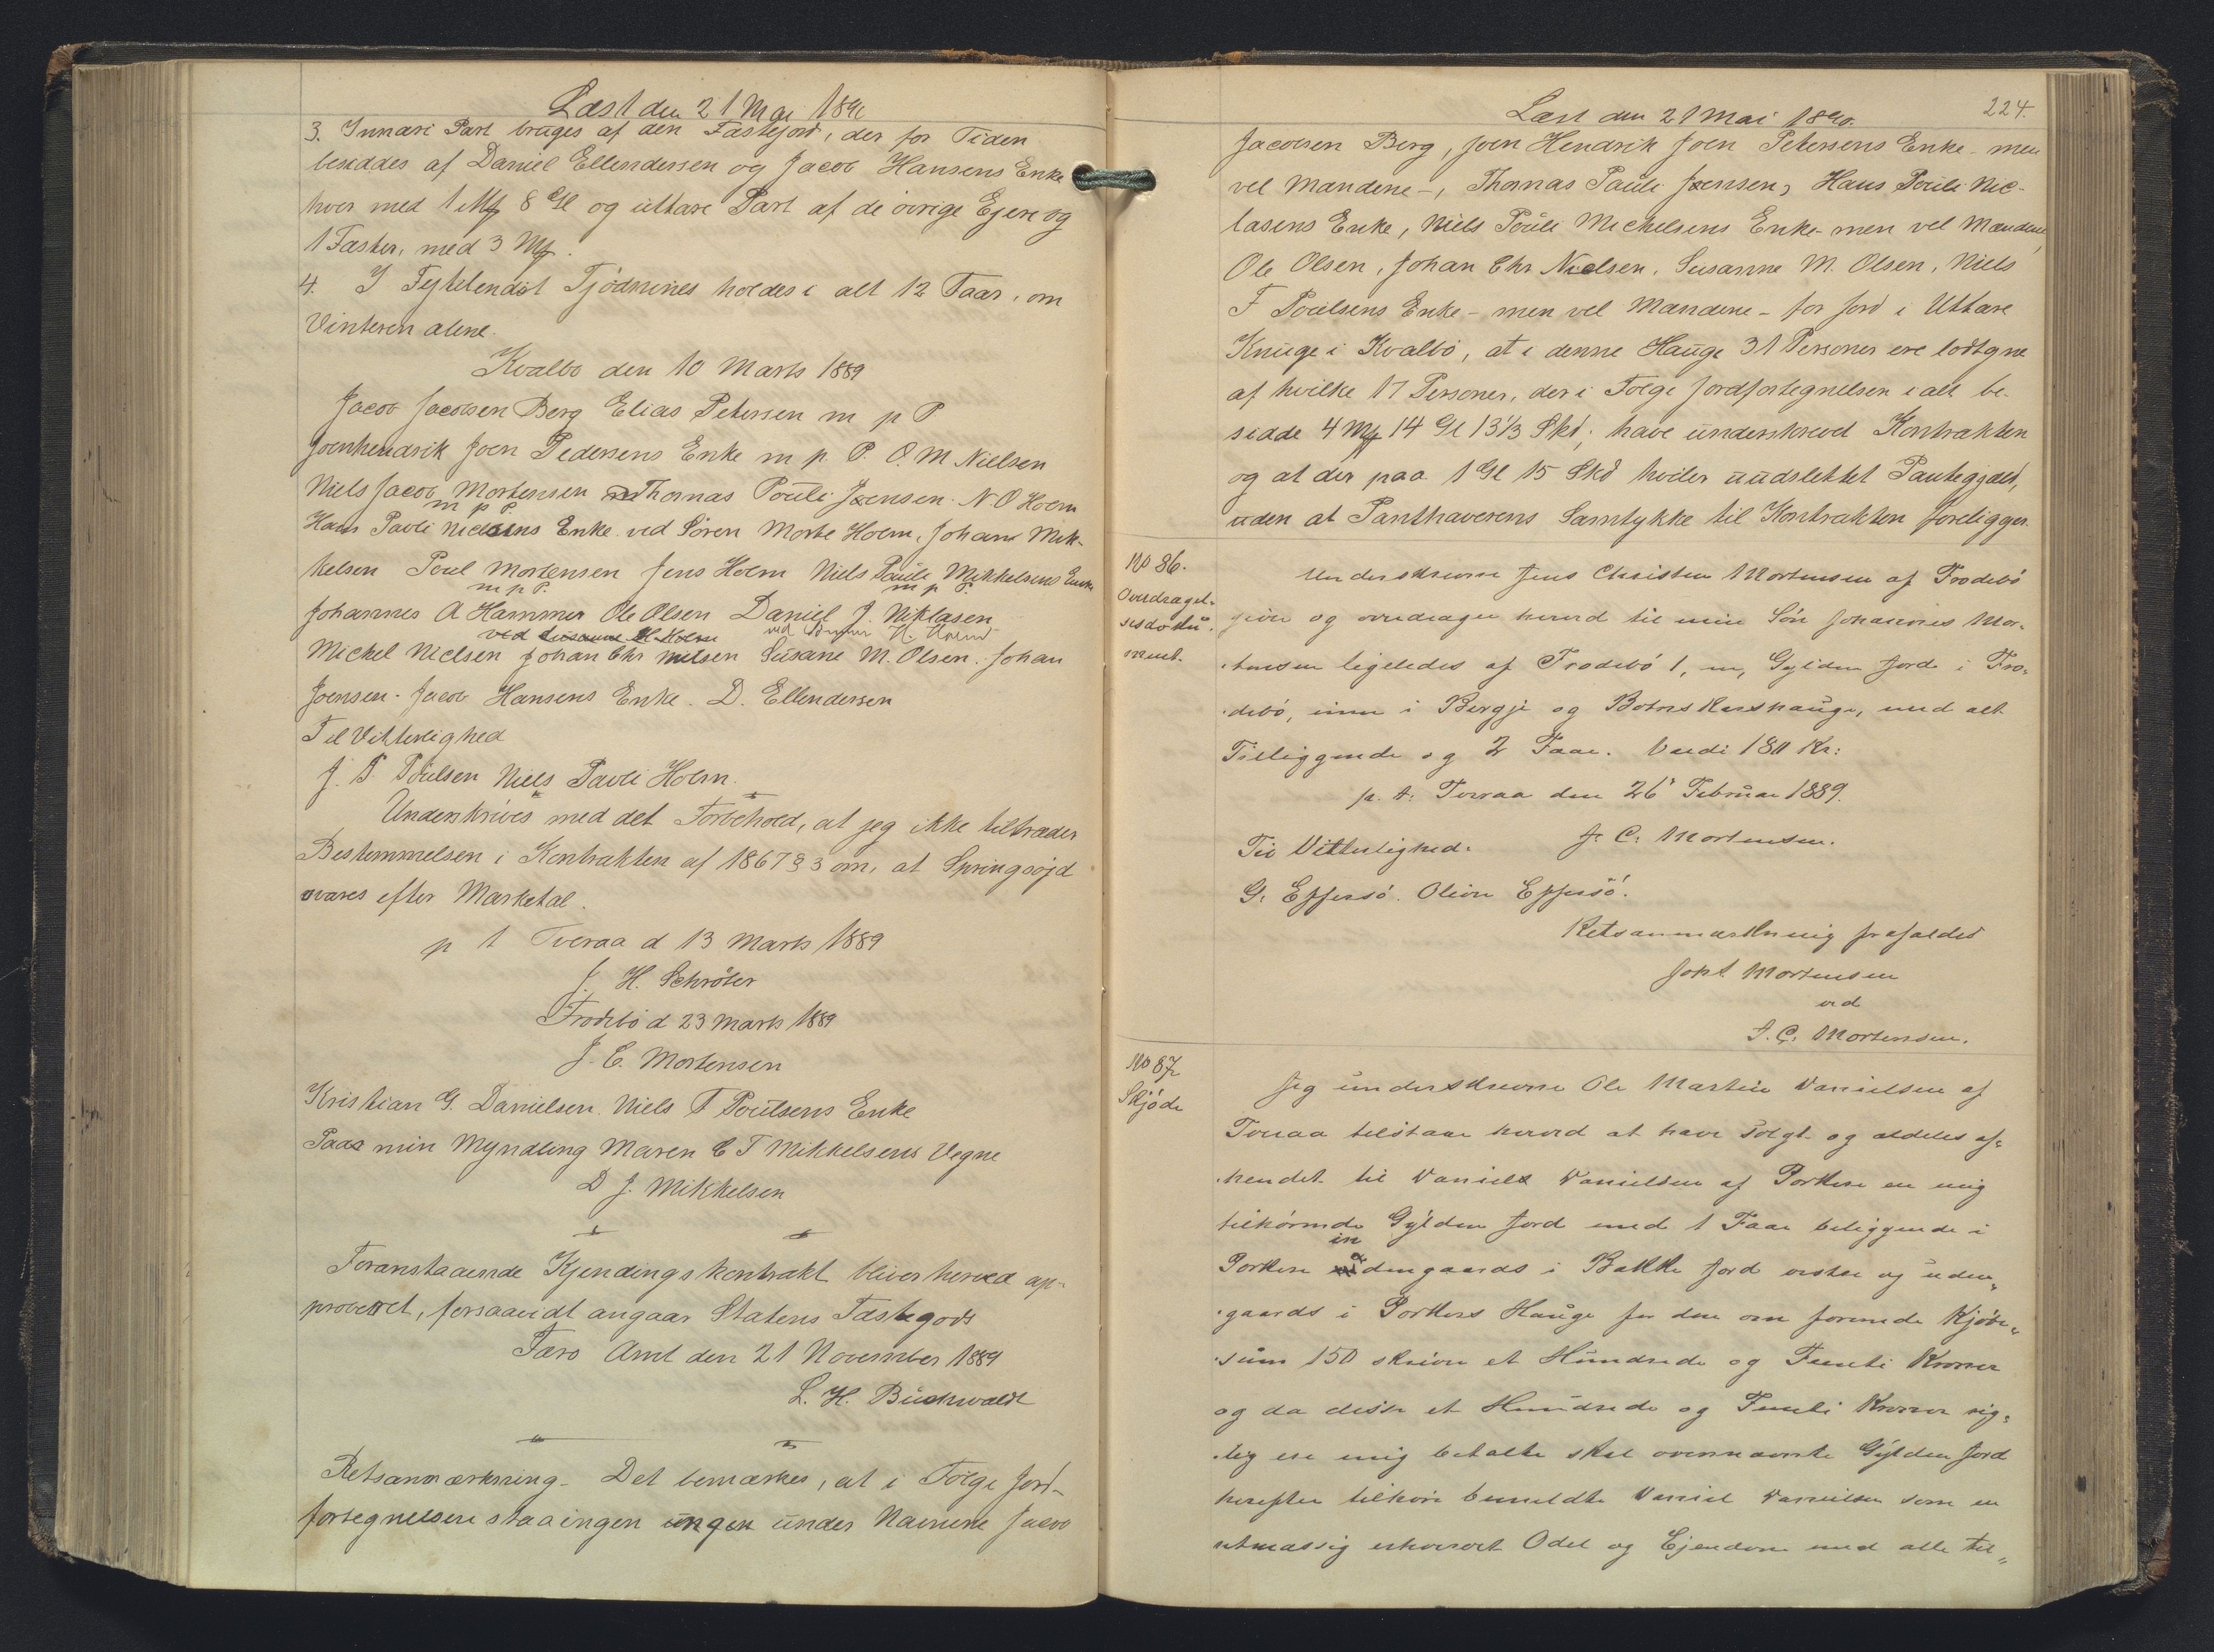 Læst den 21 Mai 1890
3. Innari Part bruges af den Fæstejord, der for Tiden
besiddes af Daniel Ellendersen og Jacob Hansens Enke
hver med 1 Mk 8 Gl og uttare Part af de övrige Ejere og
1 Fæster, med 3 Mk.
4. I Fejtelendi Tjödnunes holdes i alt 12 Faar, om
Vinteren alene.
Kvalbö den 10 Marts 1889
Jacob Jacobsen Berg Elias Petersen m p P
Joenhendrik Joen Pedersens Enke m p. P. O. M Nielsen
Niels Jacob Mortensen Thomas Pouli Joensen. N. O Holm
m p P.
Hans Pavli Niclasens Enke ved Sören Morte Holm, Johan Mik-
kelsen Poul Mortensen Jens Holm Niels Pauli Mikkelsens Enke
m p P. m p P.
Johannes A Hammer Ole Olsen Daniel J. Niklasen
ved Susanne M. Holm ved H. Holm
Michel Nielsen Johan Chr Nielsen Susane M. Olsen. Johan
Joensen. Jacob Hansens Enke. D. Ellendersen
Til Vitterlighed
J. P. Poulsen Niels Pavli Holm.
Underskrives med det Forbehold, at jeg ikke tiltræder
Bestemmelsen i Kontrakten af 1867 § 3 om, at Springsöjd
svares efter Marketal.
p t Tveraa d 13 Marts 1889
J. H. Schröter
Frodebö d 23 Marts 1889
J. C. Mortensen
Kristian G. Danielsen. Niels F Poulsens Enke
Paa min Myndling Maren C F Mikkelsens Vegne
D J. Mikkelsen
Foranstaaende Kjendingskontrakt bliver herved ap-
proberet, forsaavidt angaar Statens Fæstegods
Færö Amt den 21 November 1889
L. H. Buchwaldt
Retsanmærkning. Det bemærkes, at i Fölge Jord-
fortegnelsen staa ingen ungen under Navnene Jacob
224.
Læst den 21 Mai 1890.
Jacobsen Berg, Joen Hendrik Joen Petersens Enke - men
vel Mandene -, Thomas Pauli Joensen, Hans Pouli Nic-
lasens Enke, Niels Pouli Michelsens Enke - men vel Mandene,
Ole Olsen, Johan Chr Nielsen, Susanne M. Olsen, Niels
F Poulsens Enke - men vel Mandene - for Jord i Uttare
Knuge i Kvalbö, at i denne Hauge 31 Personer ere lodtgne
af hvilke 17 Personer, der i Fölge Jordfortegnelsen i alt be-
sidde 4 Mk 14 Gl 13 1/3 Skd, have underskrevd Kontrakten
og at der paa 1 Gl 15 Skd hviler uudslettet Pantegjæld,
uden at Panthaverens Samtykke til Kontrakten foreligger.
No 86.
Overdragel-
sesdoku-
ment.
Underskrevne Jens Christen Mortensen af Frodebö
giver og overdrager herved til min Sön Johannes Mor-
tensen ligeledes af Frodebö 1, en, Gylden Jord i Fro-
debö, inn i Bergje og Botnskarshauge, med alt
Tilliggende og 2 Faar. Værdi 180 Kr:
p. t. Tveraa den 26' Februar 1889.
Til Vitterlighed. J. C. Mortensen.
G. Effersö. Oliva Effersö.
Retsanmærkning frafaldes
Joh Mortensen
ved
J. C. Mortensen.
No 87
Skjöde
Jeg underskrevne Ole Martin Danielsen af
Tveraa tilstaar herved at have solgt og aldeles af-
hendet til Daniel Danielsen af Porkere en mig
tilhörende Gylden Jord med 1 Faar beliggende i
Porkere indengaards i Bakke Jord vester og uden-
gaards i Porkers Hauge for den om forenede Kjöbe-
sum 150 skriver et Hundrede og Femti Kroner
og da disse et Hundrede og Femti Kroner rig-
tig ere mig betalte skal ovennævnte Gylden Jord
herefter tilhöre bemeldte Daniel Danielsen som en
retmæssig erhvervet Odel og Ejendom med alle til-